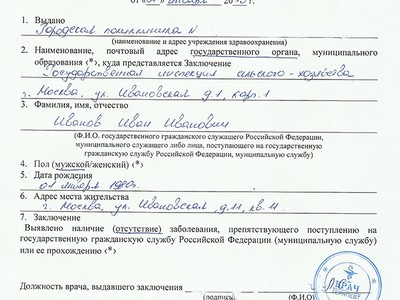 от «01» января 20
1. Выдано
Городская поликлиника N
(наименование и адрес учреждения здравоохранения)
2. Наименование, почтовый адрес государственного органа, муниципального
образования <*>, куда представляется Заключение
Государственная инспекция сельского-хозяйства
г. Москва, ул. Ивановская д.1, кор.1
3. Фамилия, имя, отчество
Иванов Иван Иванович
(Ф.И.О. государственного гражданского служащего Российской Федерации,
муниципального служащего либо лица, поступающего на государственную
гражданскую службу Российской Федерации, муниципальную службу)
4. Пол (мужской/женский) <*>
5. Дата рождения
01 января 1980г.
6. Адрес места жительства
г. Москва, ул. Ивановская, д.11, кв.11.
7. Заключение
Выявлено наличие (отсутствие) заболевания, препятствующего поступлению на
государственную гражданскую службу Российской Федерации (муниципальную службу)
или ее прохождению <*>
ВРАЧ
Должность врача, выдавшего заключение
(подпись)
(Ф.И.О)